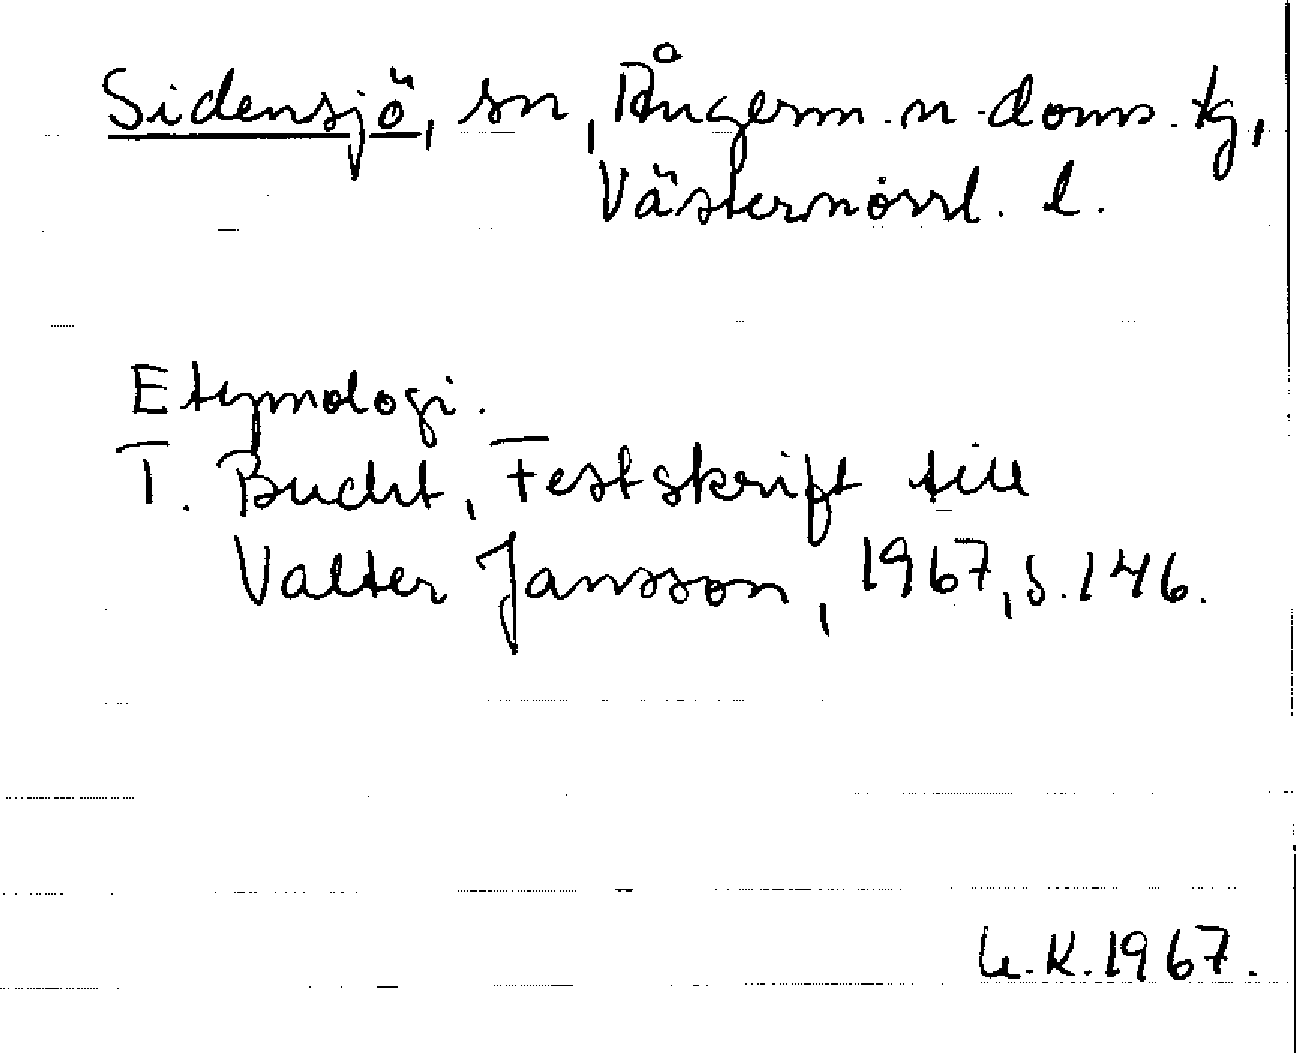 Sidensjö, sn, Ångerm. n. doms. tg,
Västernorrl. l.
Etymologi.
T. Bucht, Festskrift till
Valter Jansson, 1967, s. 146.
U. K. 1967.